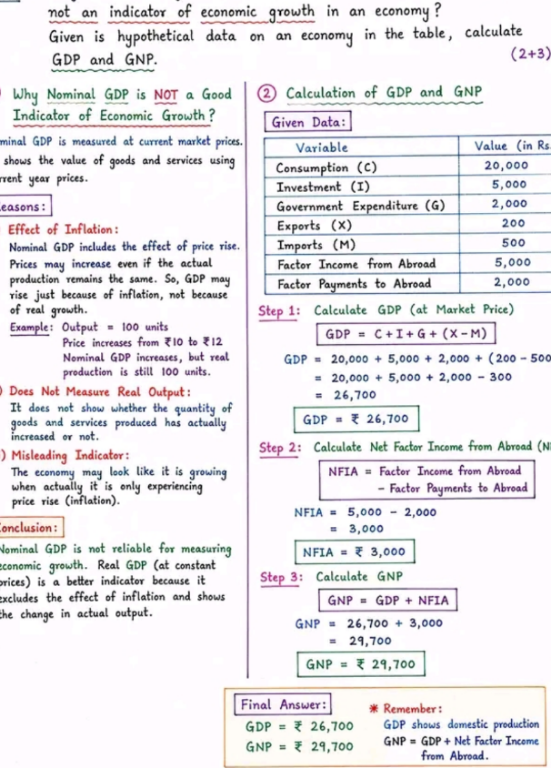 not an indicator of economic growth in an economy?
Given is hypothetical data on an economy in the table, calculate
GDP and GNP.
(2+3)
Why Nominal GDP is NOT a Good
Indicator of Economic Growth?
minal GDP is measured at current market prices.
shows the value of goods and services using
rrent year prices.
easons:
Effect of Inflation:
Nominal GDP includes the effect of price rise.
Prices may increase even if the actual
production remains the same. So, GDP may
rise just because of inflation, not because
of real growth.
Example: Output = 100 units
Price increases from ₹10 to ₹12
Nominal GDP increases, but real
production is still 100 units.
) Does Not Measure Real Output:
It does not show whether the quantity of
goods and services produced has actually
increased or not.
) Misleading Indicator:
The economy may look like it is growing
when actually it is only experiencing
price rise (inflation).
Conclusion:
Nominal GDP is not reliable for measuring
economic growth. Real GDP (at constant
prices) is a better indicator because it
excludes the effect of inflation and shows
the change in actual output.
② Calculation of GDP and GNP
Given Data:
Variable Value (in Rs.
Consumption (C) 20,000
Investment (I) 5,000
Government Expenditure (G) 2,000
Exports (X) 200
Imports (M) 500
Factor Income from Abroad 5,000
Factor Payments to Abroad 2,000
Step 1: Calculate GDP (at Market Price)
GDP = C+I+G+(X-M)
GDP = 20,000 + 5,000 + 2,000 + (200 - 500
= 20,000 + 5,000 + 2,000 - 300
= 26,700
GDP = ₹ 26,700
Step 2: Calculate Net Factor Income from Abroad (N
NFIA = Factor Income from Abroad
- Factor Payments to Abroad
NFIA = 5,000 - 2,000
= 3,000
NFIA = ₹ 3,000
Step 3: Calculate GNP
GNP = GDP + NFIA
GNP = 26,700 + 3,000
= 29,700
GNP = ₹ 29,700
Final Answer:
GDP = ₹ 26,700
GNP = ₹ 29,700
* Remember:
GDP shows domestic production
GNP = GDP + Net Factor Income
from Abroad.